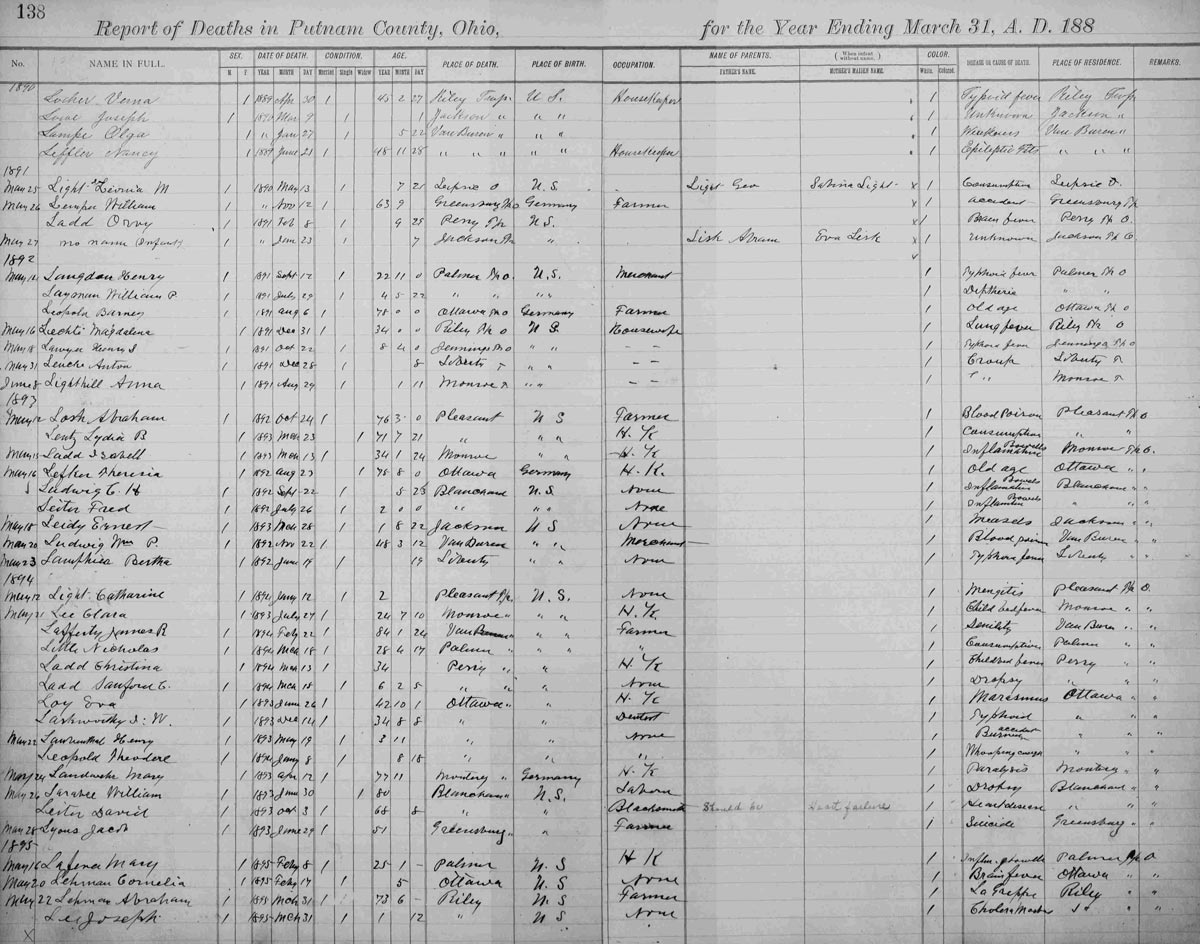 138
Report of Deaths in Putnam County, Ohio, for the Year Ending March 31, A. D. 188
No. NAME IN FULL. SEX. DATE OF DEATH. CONDITION. AGE. PLACE OF DEATH. PLACE OF BIRTH. OCCUPATION. NAME OF PARENTS. (When infant without name.) COLOR. DISEASE OR CAUSE OF DEATH. PLACE OF RESIDENCE. REMARKS.
M. F. YEAR MONTH DAY Married Single Widow YEAR MONTH DAY FATHER'S NAME. MOTHER'S MAIDEN NAME. White. Colored.
1890
Locher Verna 1 1889 Apr 30 1 45 2 27 Riley Twp U S. HouseKeeper 1 Typoid fever Riley Twp
Love Joseph 1 1890 Mar 9 1 1 Jackson " " " 1 Unknown Jackson "
Lampe Olga 1 " Jan 27 1 5 22 Van Buren " " " 1 Weakness Van Buren "
Leffler Nancy 1 1889 June 21 1 48 11 28 " " " " HouseKeeper 1 Epileptic Fits " " "
1891
May 25 Light M 1 1890 May 13 1 7 21 Leipsic O U.S. Light Geo Sabina Light x 1 Consumption Leipsic O.
May 26 William 1 " Nov 12 1 63 9 Greensburg O Germany Farmer x 1 accident Greensburg
Ladd Orvy 1 1891 Feb 8 1 9 25 Perry U.S. x 1 Brain fever Perry O.
May 27 no name Infant 1 " Jan 23 1 7 Jackson " Lish Abram Eva Lish x 1 Unknown Jackson
1892
May 14 Langdon Henry 1 1891 Sept 12 1 22 11 0 Palmer O. U.S. Merchant 1 fever Palmer O
Layman William P. 1 1891 July 29 1 4 5 22 " " " " 1 Diptheria " "
Leopold Barney 1 1891 aug 6 1 78 0 0 Ottawa O Germany Farmer 1 Old age Ottawa O
May 16 Liechti Magdalena 1 1891 Dec 31 1 34 0 0 Riley O U S. Housewife 1 Lung fever Riley O
May 18 Lawyer Henry 1 1891 Oct 22 1 8 4 0 Jennings O " " - - 1 fever Jennings O
May 31 Anton 1 1891 Dec 28 1 8 Liberty " " - - 1 Croup Liberty
June 8 Lighthill Anna 1 1891 Aug 29 1 1 11 Monroe " " - - 1 " " Monroe
1893
May 12 Losh Abraham 1 1892 Oct 24 1 76 3 0 Pleasant U S Farmer 1 Blood Poison Pleasant O
Lentz Lydia B 1 1893 Mch 23 1 71 7 21 " " " H. K 1 Consumption " "
May 15 Ladd Isabell 1 1893 Mch 13 1 34 1 24 Monroe " " H. K 1 Inflamation Bowells Monroe O.
May 16 Theresia 1 1892 aug 23 1 78 8 0 Ottawa Germany H. K. 1 Old age Ottawa " "
Ludwig C. H 1 1892 Sept 22 5 23 Blanchard U.S. None 1 Inflamation Bowels Blanchard " "
Leiter Fred 1 1892 July 26 1 2 0 0 " " " None 1 Inflamation Bowels " " "
May 18 Leidy Ernest 1 1893 Mch 28 1 1 8 22 Jackson U S None 1 Measels Jackson " "
May 20 Ludwig Wm P. 1 1892 Nov 22 1 48 3 12 Van Buren " " Merchant 1 Blood poison Van Buren " "
May 23 Bertha 1 1892 June 19 1 19 Liberty " " None 1 fever Liberty " "
1894
May 12 Light Catharine 1 1894 Jany 12 1 2 Pleasant U.S. None 1 Mengitis Pleasant O.
May 21 Lee Clara 1 1893 July 27 1 24 7 10 Monroe " " " H. K 1 Child bed fever Monroe " "
Lafferty James R 1 1894 Feby 22 1 84 1 24 Van Buren " " Farmer 1 Senility Van Buren " "
Little Nicholas 1 1894 Mch 18 1 28 4 17 Palmer " " " " 1 Consumptives Palmer " "
Ladd Christina 1 1894 Mch 13 1 34 Perry " " H. K 1 Childbed fever Perry " "
Ladd Sanford C. 1 1894 Mch 18 1 6 2 5 " " " None 1 Dropsy " " "
Loy Eva 1 1893 June 26 1 42 10 1 Ottawa " " H. K 1 Marcsmus Ottawa " "
Larkworthy W. 1 1893 Dec 14 1 34 8 8 " " Dentist 1 Typhoid " " "
May 22 Henry 1 1893 May 19 1 3 11 " " None 1 Burned accident " " "
Leopold Theodore 1 1894 Jany 8 1 8 18 " " " 1 Whooping cough " " "
May 24 Mary 1 1893 Apr 12 1 77 11 Monterey " Germany H. K 1 Paralysis Monterey " "
May 26 Larabee William 1 1893 June 30 1 80 Blanchard " U.S. Laborer 1 Dropsy Blanchard " "
Leiter David 1 1893 Oct 3 1 68 8 " " Blacksmith Should be failure 1 Heart disease " " "
May 28 Lyons Jacob 1 1893 June 29 1 51 Greensburg " " Farmer 1 Suicide Greensburg " "
1895
May 16 Mary 1 1895 Feby 8 1 25 1 - Palmer U. S H K 1 Bowells Palmer O
May 20 Lehman Cornelia 1 1895 Feby 17 1 5 Ottawa U. S None 1 Brain fever Ottawa " "
May 22 Lehman Abraham 1 1895 Mch 31 1 73 6 - Riley U. S Farmer 1 La Grippe Riley " "
Lee Joseph 1 1895 Mch 31 1 1 12 " U S None 1 Cholera " "
X